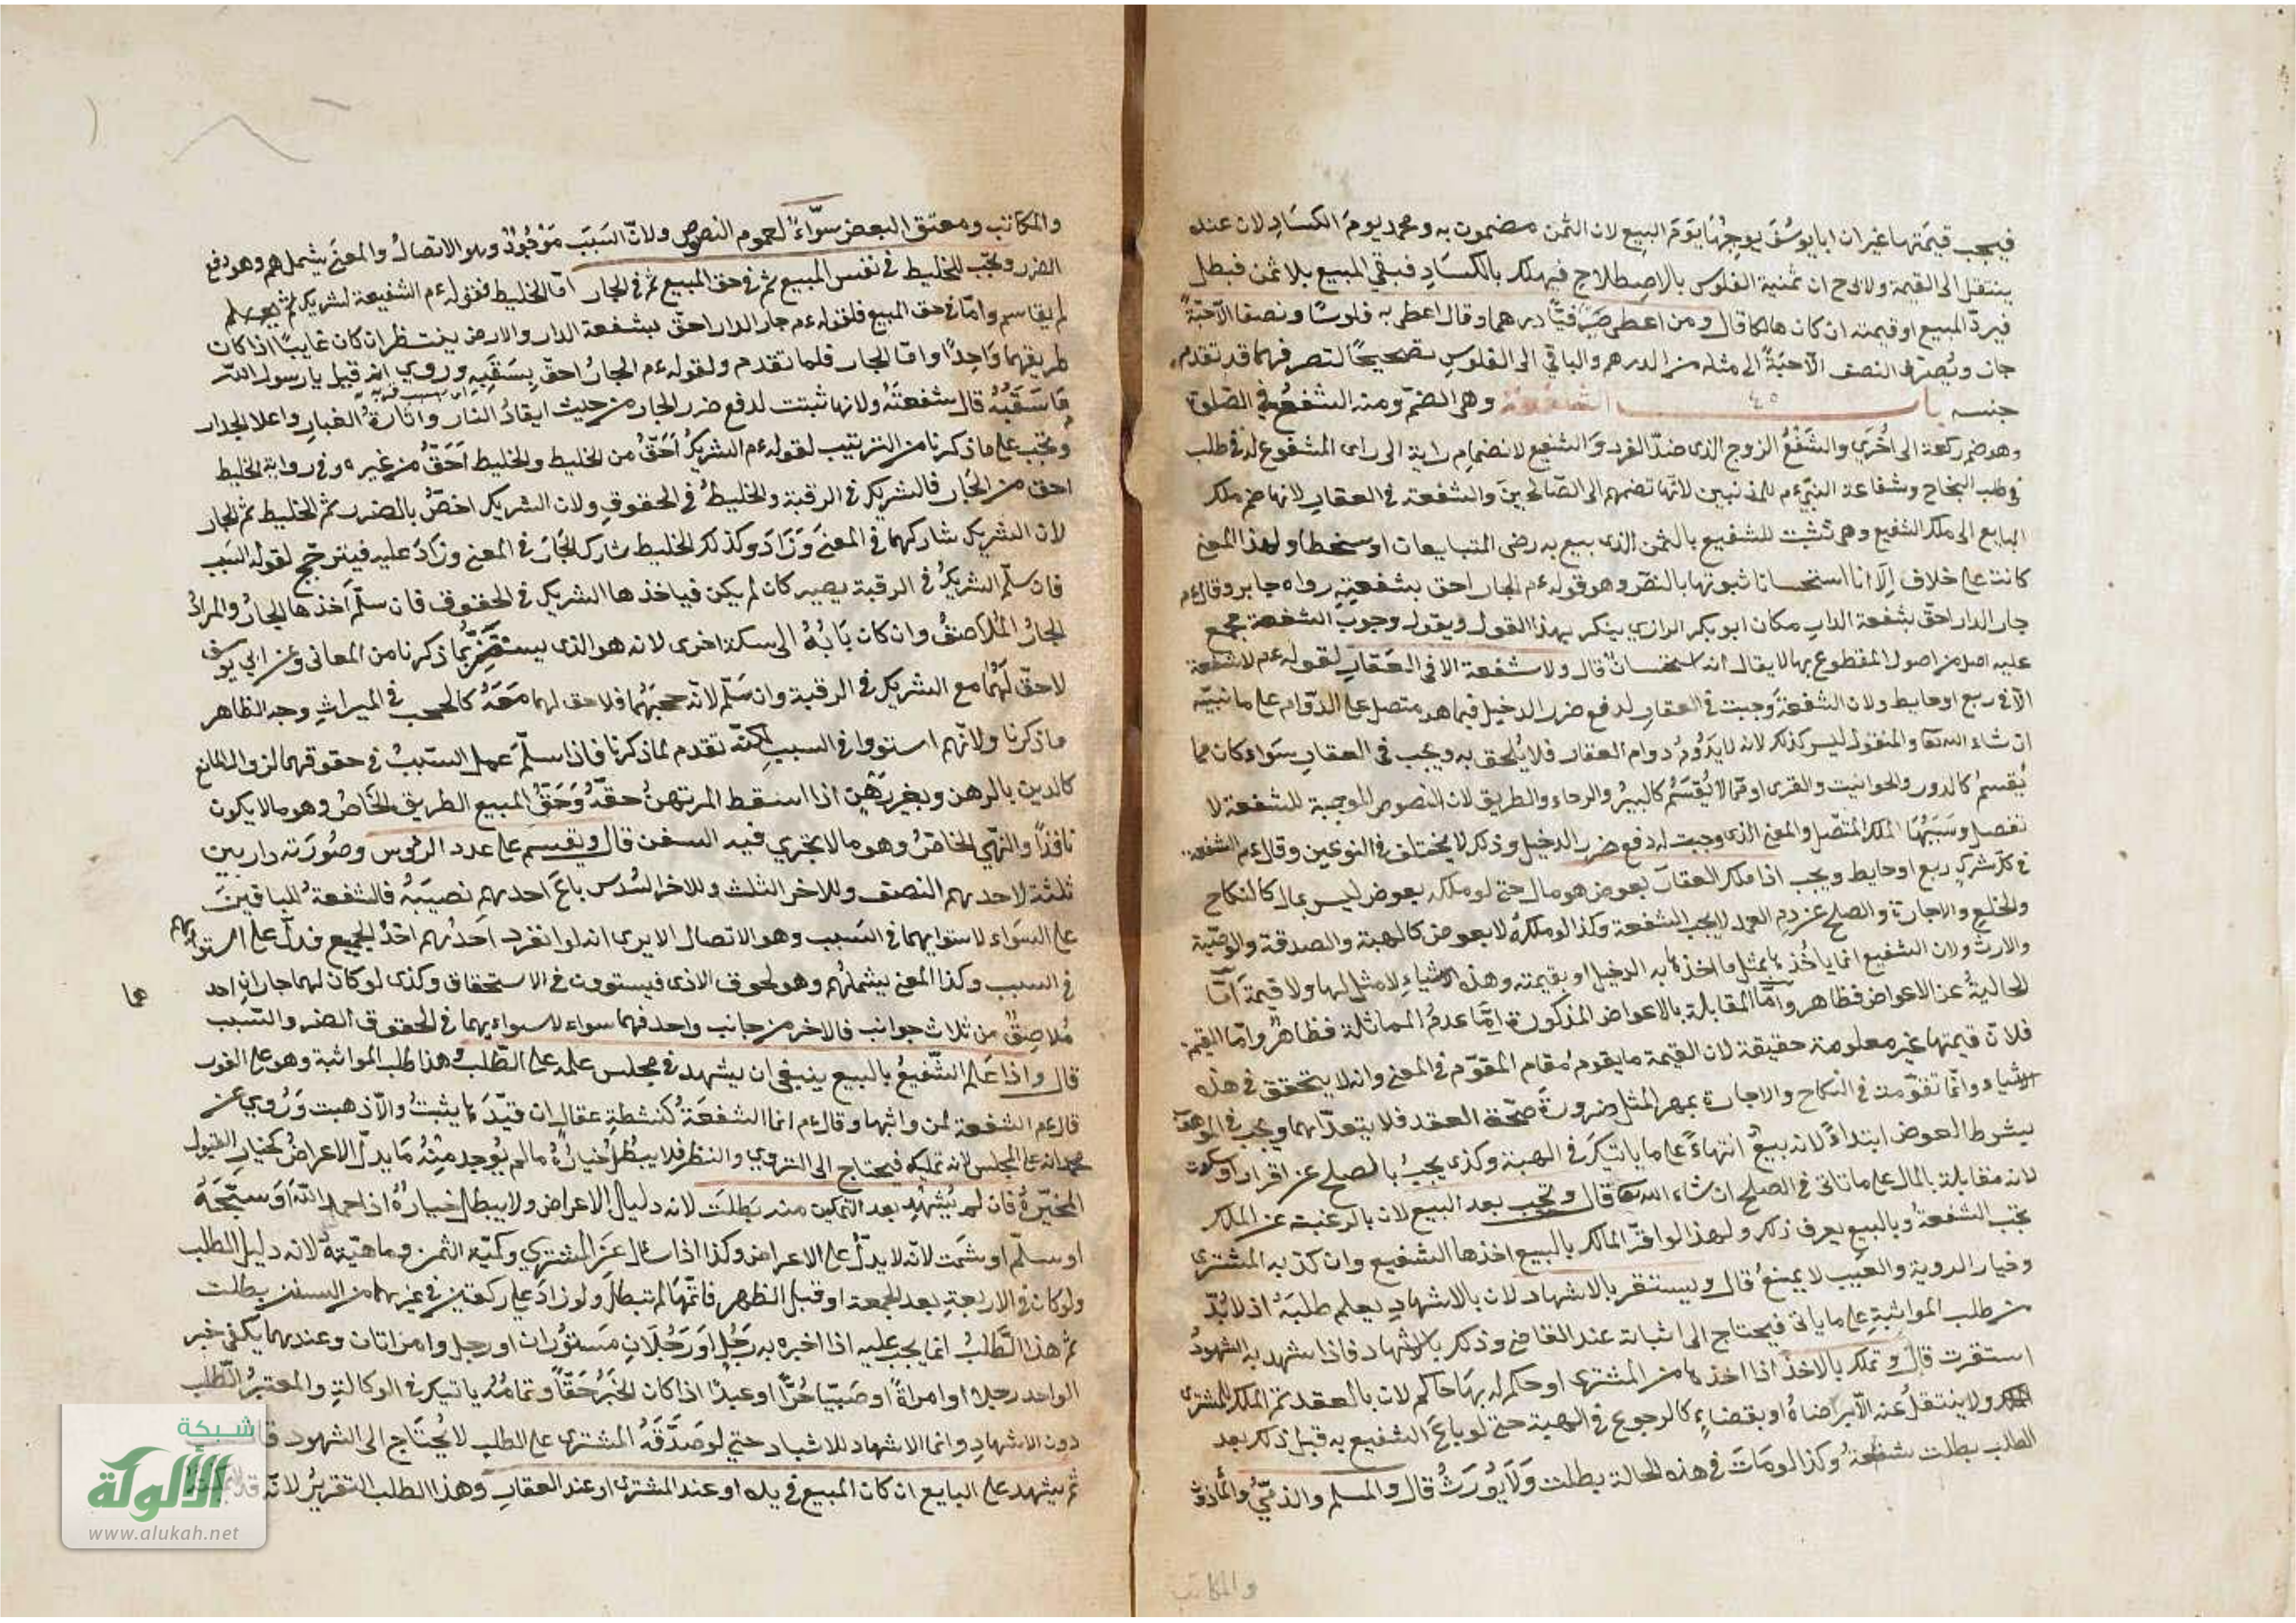 فيجب قيمتها غير ان ابا يوسُفَ يوجِبُها يَوَمَ البيع لان الثمن مضمون به ومحمد يومَ الكسادِ لان عنده
ينتقل الى القيمة ولابي ح ان ثمنية الفلوس بالاصطلاح فيهلك بالكسادِ فبقي المبيع بلا ثمن فبطل
فيردّ المبيع او قيمته ان كان هالكا قال ومن اعطى صَيْرفيًّا درهما وقال اعطى به فلوسًا ونصفا الّا حبّةً
جاز ويُصرف النصف الّا حبَةً الى مثله من الدرهم والباقي الى الفلوسِ تصحيحًا لتصرفهما قد تقدم
جنسه باب الشفعة وهى الضمّ ومنه الشفعُ في الصّلوة
وهو ضم ركعة الى اُخرَي والشَفْعُ الزوج الذى ضدّ الفرد وَالشفيع لانضمامِ رايه الى راى المشفوع له في طلب
في طلب النجاح وشفاعة النبي ءم للمذنبين لانّها تضمهم الى الصّالحينَ والشفعة في العقار لانها ضم ملك
البايع الى ملك الشفيع وهى تثبت للشفيع بالثمن الذى بيع به رضى المتبايعان او سخطا ولهذا المعنى
كانت على خلاف اِلّا انا استحسانا ثبوتها بالنصّ وهو قوله ءم الجار احق بشفعتِهِ رواه جابر وقال ءم
جار الدار احقّ بشفعة الدار مكان ابو بكر الرازي ينكر بهذا القول ويقول وجوب الشفعة مجمع
عليه اصل من اصول المقطوع بها لا يقال انه استحسانٌ قال ولا شفعة الا في العقارِ لقوله ءم لا شفعة
الّا في ربع او حايط ولان الشفعةَ وجبت في العقار لدفع ضرر الدخيل فيما هو متصل على الدّوام على ما نبيّه
ان شاء الله تعا والمنقول ليس كذلك لانه لا يَدُومُ دوام العقار فلا يُلحق به ويجب في العقارِ سَواء كان مما
يُقسمُ كالدور والحوانيت والقرى او ممّا لا يُقسَمُ كالبيرُ والرحاء والطريق لان النصوص الموجبة للشفعة لا
تفصل وسَبَبُهَا الملك المتّصل والمعنى الذى وجبت له دفع ضرر الدخيل وذلك لا يختلف في النوعين وقال ءم الشفعة
في كلّ شركٍ ربع او حايط ويجب اذا ملك العقارَ بعوض هو مال حتى لو ملكه بعوض ليس بمال كالنكاح
والخلع والاجارة والصلح عن دم العمد لا يجب الشفعة وكذا لو ملكهُ لا بعوض كالهبة والصدقة والوصّية
والارث ولان الشفيع انما ياخُذها بمثل ما اخذها به الدخيل او بقيمته وهذه الاشياءِ لا مثل لها ولا قيمة امّا
الخاليةُ عن الاعواض فظاهر وامّا المقابلة بالاعواض المذكورة امّا عدمُ المماثلة فظاهرٌ وامّا القيمة
فلانّ قيمتها غير معلومة حقيقة لان القيمة ما يقومُ مُقام المقوّم في المعنى وانه لا يتحقق في هذه
الاشياء وانما تقوّمت في النكاح والاجارة بمهر المثل ضرورةَ صحّة العقد فلا يتعدّاهما ويجب في الموهوب
بشرط العوض ابتداءً لانه بيعٌ انتهاءً على ما ياتيكَ في الهبة وكذى يجبُ بالصلح عن اقرار او سكوت
لانه مقابلة بالمال على ما تاتى في الصلح ان شاء الله تعا قال وتجب بعد البيع لان بالرغبة عن الملك
تجب الشفعةُ وبالبيع يعرف ذلك ولهذا لو اقرّ المالك بالبيع اخذها الشفيع وان كذبه المشترى
وخيار الروية والعَيب لا يمنعُ قال ويستقر بالاشهاد لان بالاشهادِ يعلم طلبَهُ اذ لا بُدّ
من طلب المواثبةِ على ما ياتى فيحتاج الى اثباته عند القاضى وذلك بالاشهاد فاذا شهد به الشهودُ
استقرت قال وتملك بالاخذ اذا اخذها من المشترى او حكم له بهَا حاكم لان بالعقد تم الملك للمشترى
ولا ينتقلُ عنه الّا برضاهُ او بقضاءٍ كالرجوع في الهبة حتى لو باعَ الشفيع به قبل ذلك بعد
الطلب بطلت شفعتهُ وكذا لو مَاتَ في هذه الحالة بطلت وَلَا يُورَثُ قال والمسلم والذمّىُ والمأذونُ
والمكاتب
والمكاتب ومعتق البعض سوَّاءٌ لعموم النصوص ولانّ السَبَبَ مَوْجُودٌ وهو الاتصالُ والمعنى يشملهم وهو دفع
الضرر وتجب للخليط في نفس المبيع ثم في حق المبيع ثم في الجار امّا الخليط فلقوله ءم الشفيعة لشريك لم
لم يقاسم وامّا في حق المبيع فلقوله ءم جار الدار احقّ بشفعة الدار والارض ينتظر ان كان غايبًا اذا كان
طريقهما وَاحِدًا وامّا الجار فلما تقدم ولقوله ءم الجارُ احقّ بِسَقَبِهِ وروي انه قيل يا رسول الله
مَا سَقَبُهُ قال شفعتَهُ ولانها ثبتت لدفع ضرر الجار من حيث ايقادُ النار واثارةُ الغبارِ واعلا الجدار
وتجب على ما ذكرنا من الترتيب لقوله ءم الشريكُ اَحَقّ من الخليط والخليط اَحَقُّ من غيره وفي رواية الخليط
احق من الجَار فالشريك في الرقبة والخليطُ في الحقوقِ ولان الشريك اخصُّ بالضرر ثم الخليط ثم الجار
لان الشريك شاركهما في المعنى وَزَادَ وكذلك الخليط شارك الجَارَ في المعنى وزادَ عليه فيترجح لقوله السبب
فان سلّم الشريكُ في الرقبة يصير كان لم يكن فياخذها الشريك في الحقوق فان سلّم اَخذها الجارُ والمرادُ
الجارُ المُلاصقُ وان كان بَابُهُ الى سكة اخرى لانه هو الذى يستضِرُّ بما ذكرنا من المعانى وعن ابي يوسف
لا حقّ لَهُما مع الشريك في الرقبة وان سَلّم لانّه حجبَهُما فلا حق لهما معَهُ كالحجب في الميراثِ وجه الظاهر
ما ذكرنا ولانّهم استووا في السبب لكنّه تقدم لما ذكرنا فاذا سلّمَ عمل السّببُ في حقوقهما لزوال المانع
كالدين بالرهن وبغير رَهْنٍ اذا اسقط المرتهنُ حقّهُ وَحَقُّ المبيع الطريق الخَاصُ وهو ما لا يكون
نافذًا والنهى الخاصُّ وهو ما لا يجري فيه السفن قال ويقسم على عدد الرؤس وصُورَته دار بين
ثلثة لاحدهم النصف وللاخر الثلث وللاخر السُدس باعَ احدهم نصيبَهُ فالشفعة للباقينَ
على السوَاء لاستوايهما في السَبب وهو الاتصال الا يرى انه لو انفرد اَحَدُهم اخذ الجميع فدلّ على استوائهم
في السبب وكذا المعنى يشملهُم وهو لحوق الاذى فيستوون في الاستحقاق وكذى لو كان لهما جارانِ احد
هما
مُلاصِقٌ من ثلاث جوانب فالاخر من جانب واحد فهما سواء لاستوايهما في الحقوق الضرر والسّبب
قال واذا عَلم الشّفيعُ بالبيع ينبغى ان يشهد في مجلس علمه على الطّلب وهذا طلب المواثبة وهو على الفور
قال ءم الشفعة لمن واثبها وقال ءم انما الشفعَةُ كُنشطةِ عقال ان قيّدَها يثبتُ والّا ذهبت وَرُوي عن
محمد انه على المجلس لانه تمليك فيحتاج الى التروي والنظر فلا يبطُل خيارُهُ ما لم يُوجد منهُ مَا يدلّ الاعراضُ كخيار القبول
المخيّرةُ فان لم يُشهِد بعد التمكين منه بَطلَت لانه دليل الاعراض ولا يبطل خيارُهُ اذا حمد اللّه او سبّحَهُ
او سلّم او شمت لانّه لا يدلّ على الاعراض وكذا اذا سال عَن المشترى وكميّه الثمن وماهيّتهُ لانه دليل الطلب
ولو كان في الاربعةِ بعد الجمعة او قبل الظهر فاتمَّها لم تبطل ولو زادَ على ركعتين في غيرهما من السنن بطلت
ثم هذا الطّلبُ انما يجب عليه اذا اخبره به رَجُل اوَ رَجُلَانِ مَستُوران او رجل وامراتان وعندهما يكفي خبر
الواحد رجلا او امراةً او صَبيّا حُرًّا او عبدًا اذا كان الخبَرُ حَقّاً وتمامُه ياتيك في الوكالةِ والمعتبرُ الطّلب
دون الاشهادِ وانما الاشهاد للاثبات حتي لو صَدَّقَهُ المشترى على الطلب لا يُحتَاج الى الشهود قال
ثم يشهد على البايع ان كان المبيع في يده او عند المشترى او عند العقارِ وهذا الطلب التقريرُ لانّه قد
شبكة
الألوكة
www.alukah.net